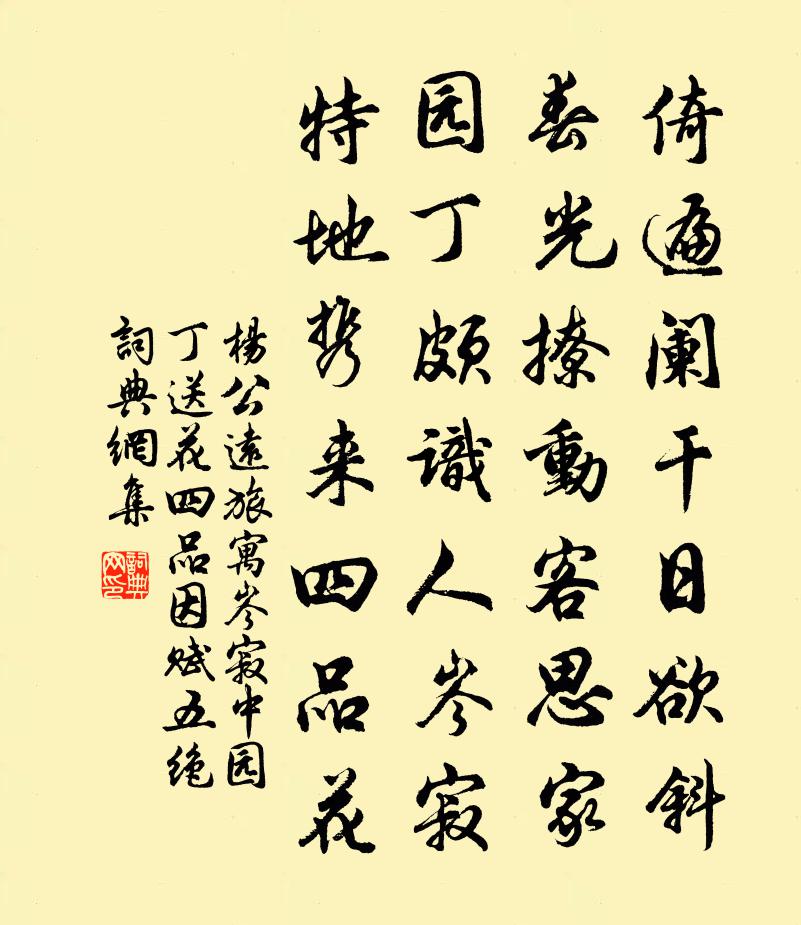 倚遍阑干日欲斜
春光撩動客思家
园丁頗識人岑寂
特地携来四品花
楊公遠旅寓岑寂中园
丁送花四品因赋五绝
詞典網集
詞典
网印